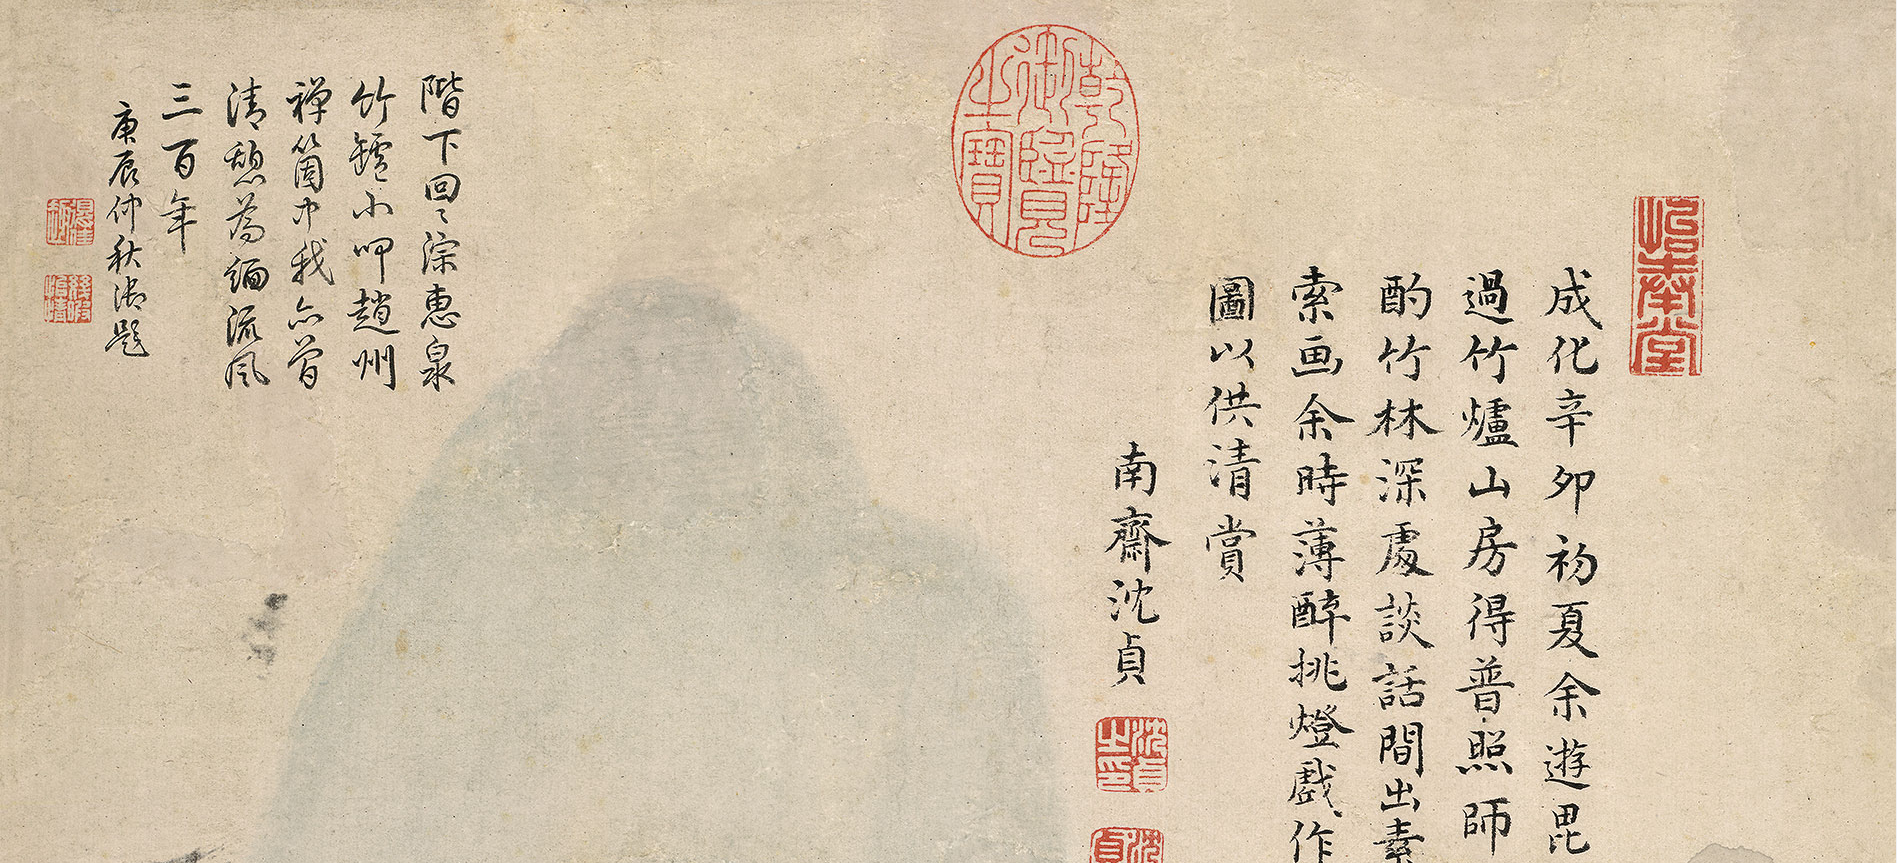 成化辛卯初夏余遊毘
過竹爐山房得普照師
酌竹林深處談話間出素
索画余時薄醉挑燈戲作
圖以供清賞
南齋沈貞
沈貞之印
沈貞
乾隆御覽之寶
階下回〻淙惠泉
竹鑪小呷趙州
禪箇中我亦曾
清憩為緬流風
三百年
庚辰仲秋御題